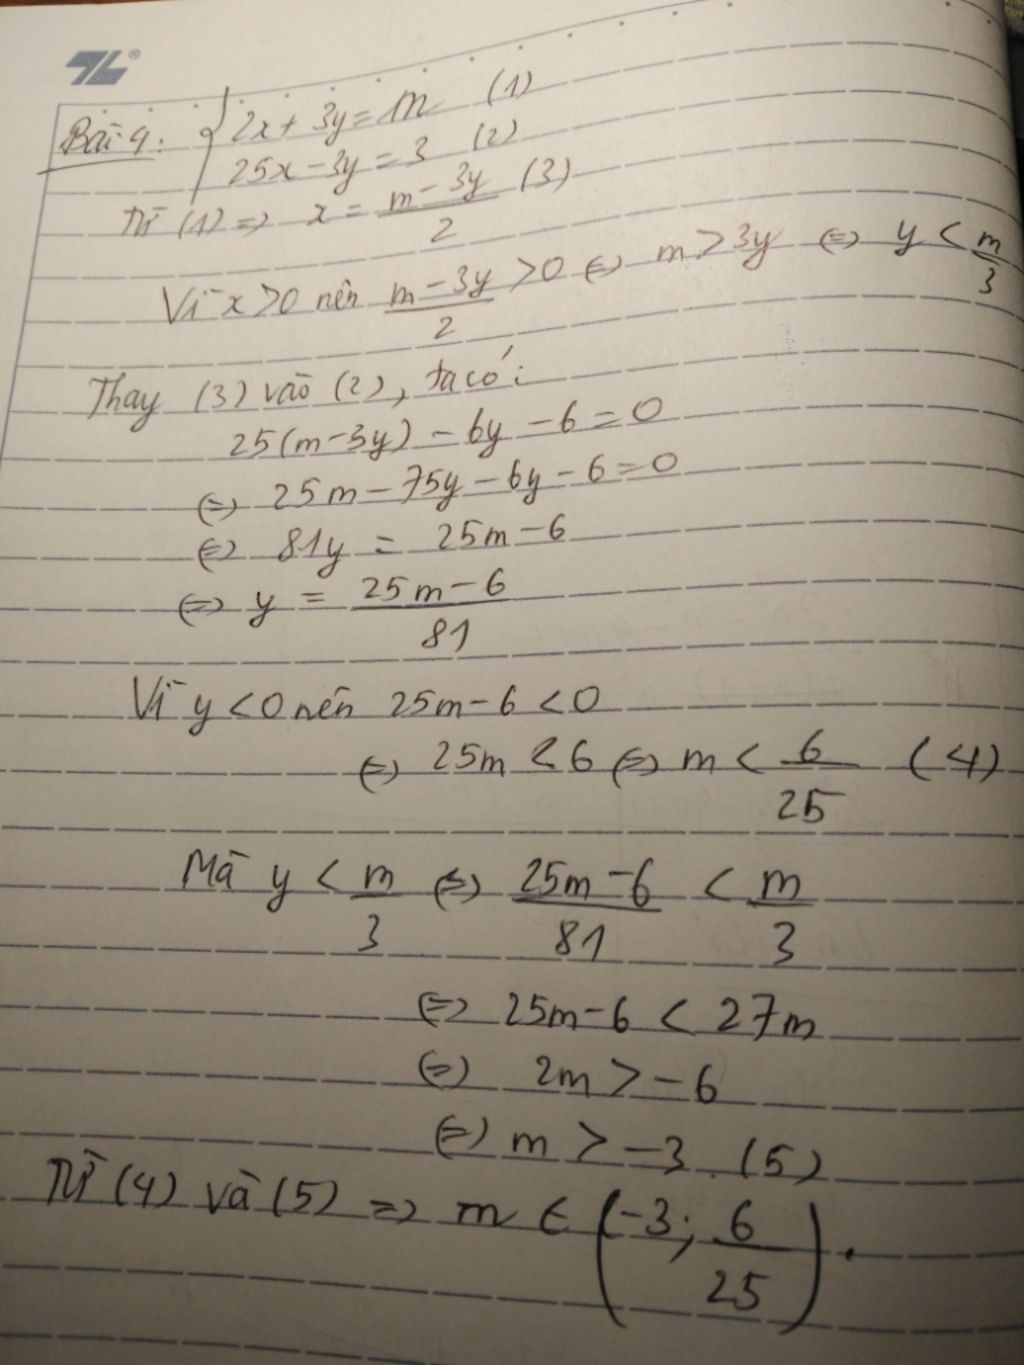 Bài 4: { 2x + 3y = m (1)
25x - 3y = 3 (2)
Từ (1) => x = (m - 3y)/2 (3)
Vì x > 0 nên (m - 3y)/2 > 0 <=> m > 3y <=> y < m/3
Thay (3) vào (2), ta có:
25(m - 3y) - 6y - 6 = 0
<=> 25m - 75y - 6y - 6 = 0
<=> 81y = 25m - 6
<=> y = (25m - 6)/81
Vì y < 0 nên 25m - 6 < 0
<=> 25m < 6 <=> m < 6/25 (4)
Mà y < m/3 <=> (25m - 6)/81 < m/3
<=> 25m - 6 < 27m
<=> 2m > -6
<=> m > -3 (5)
Từ (4) và (5) => m ∈ (-3; 6/25).